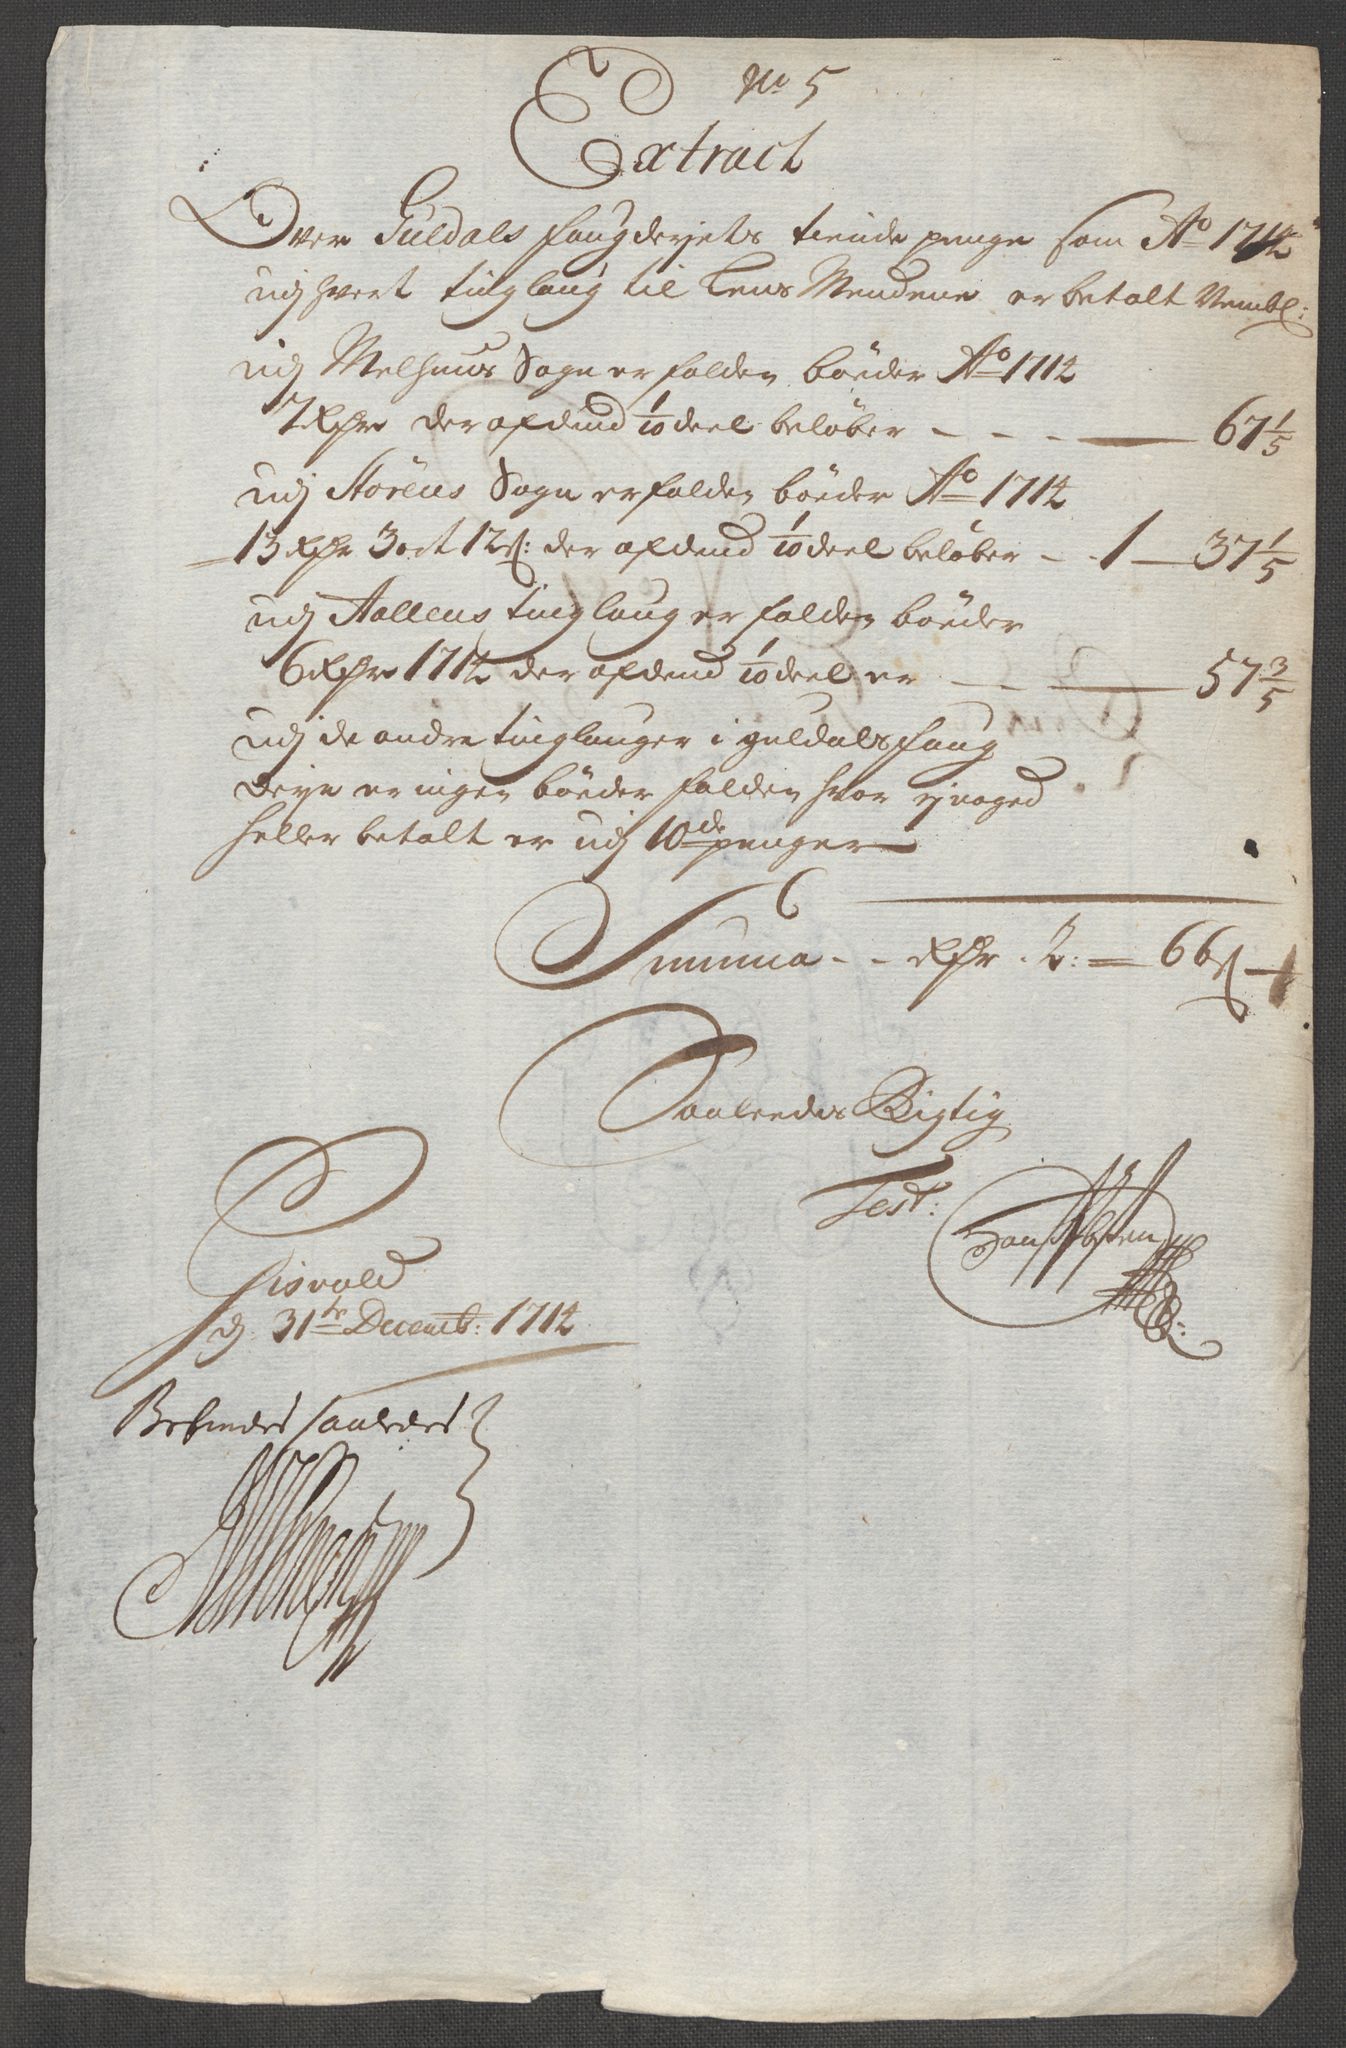 No 5
Extract
Over Guldals fougderjets tiende penge som Ao 1712
udj hvert tinglaug til Lens Mendene er betalt Nembl:
udj Melhuus Sogn er falden bøeder Ao 1712
7 Rdr der af dend 1/10 deel beløber - - - 67 1/5
udj Størens Sogn er falden bøeder Ao 1712
13 Rdr 3 ort 12 s: der af dend 1/10 deel beløber - - 1 - 37 1/5
udj Aallens tinglaug er falden bøeder
6 Rdr 1712 der af dend 1/10 deel er - - 57 3/5
udj de andre tinglauger i guldals foug
derje er ingen bøeder falden hvor ej noged
heller betalt er udj 10de penger
Summa - - Rdr . 2: = 66 s
Saaledes Rigtig
Test:
Gisvold
d. 31te Decemb: 1712
Befindes saaledes